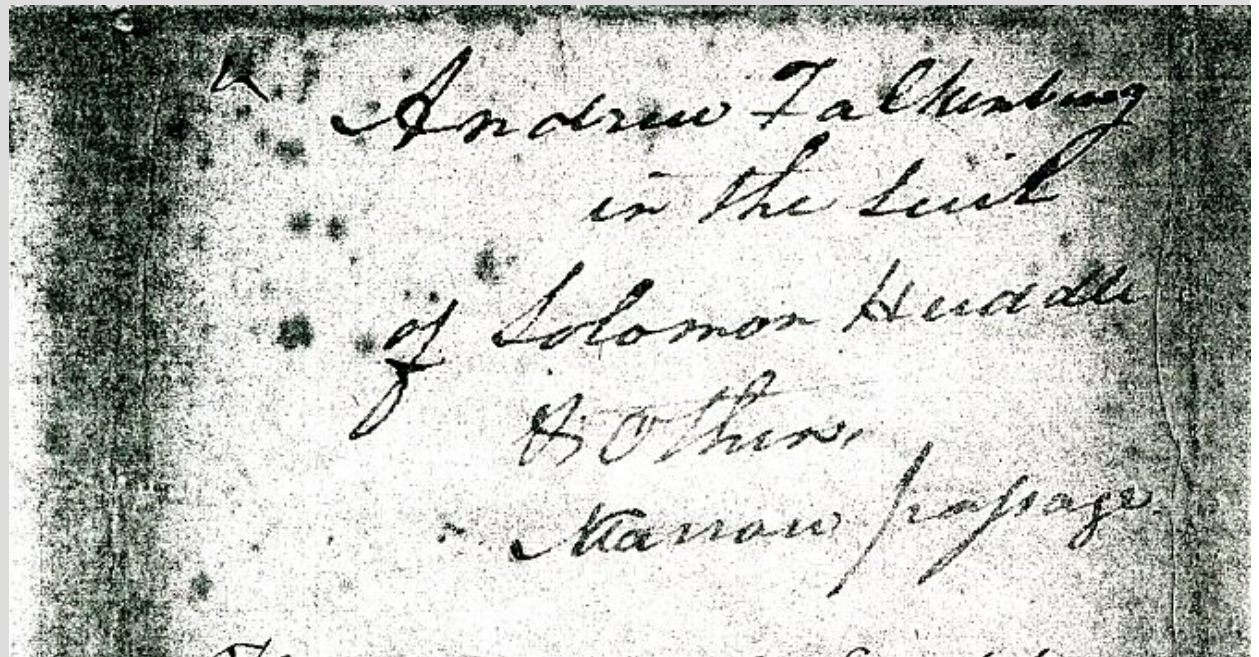 Andrew Falkenburg
in the suit
of Solomon Huddle
& Others
Narrow passage